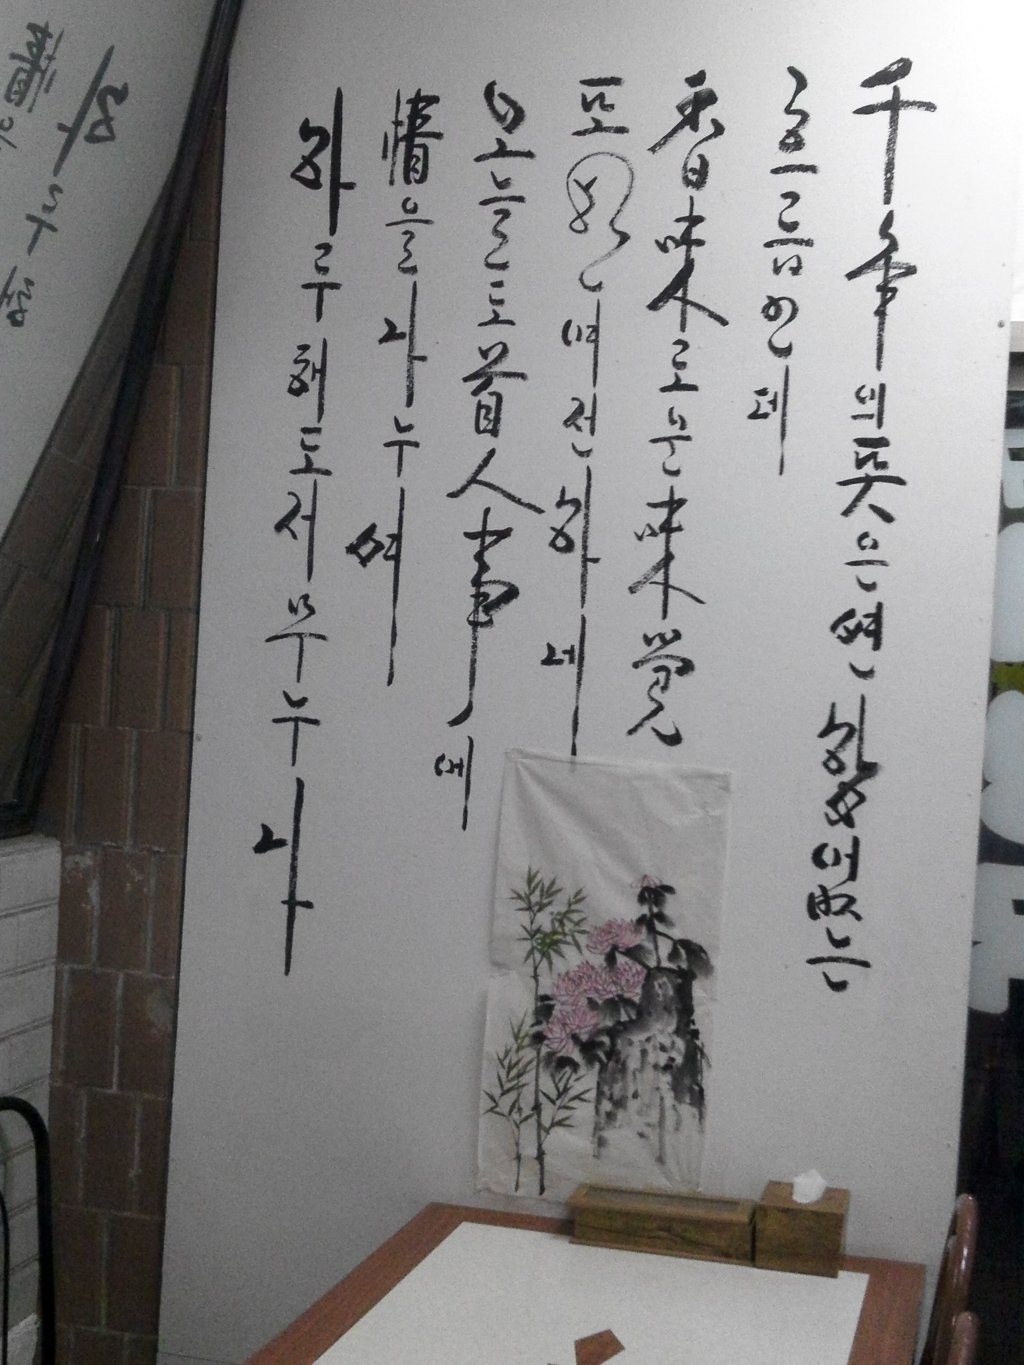 千年의 뜻은 변함없는
흐름인데
香味로운 味覺
또한 여전하네
오늘도 首人事에
情을 나누며
하루해도 저무누나